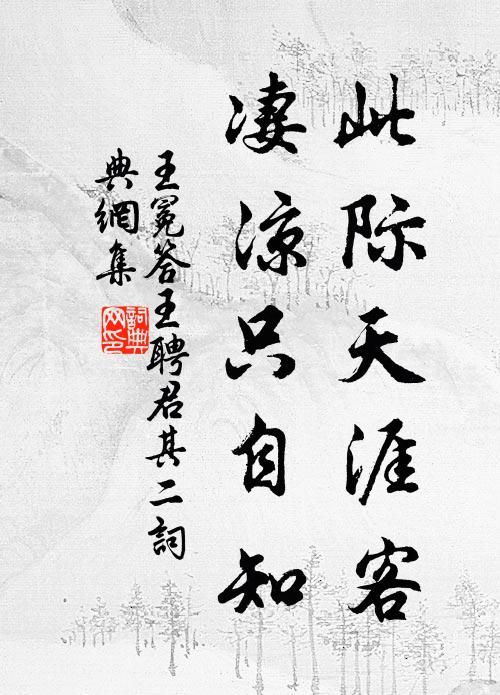 此际天涯客
凄凉只自知
王冕答王聘君其二詞
典網集
詞典网印